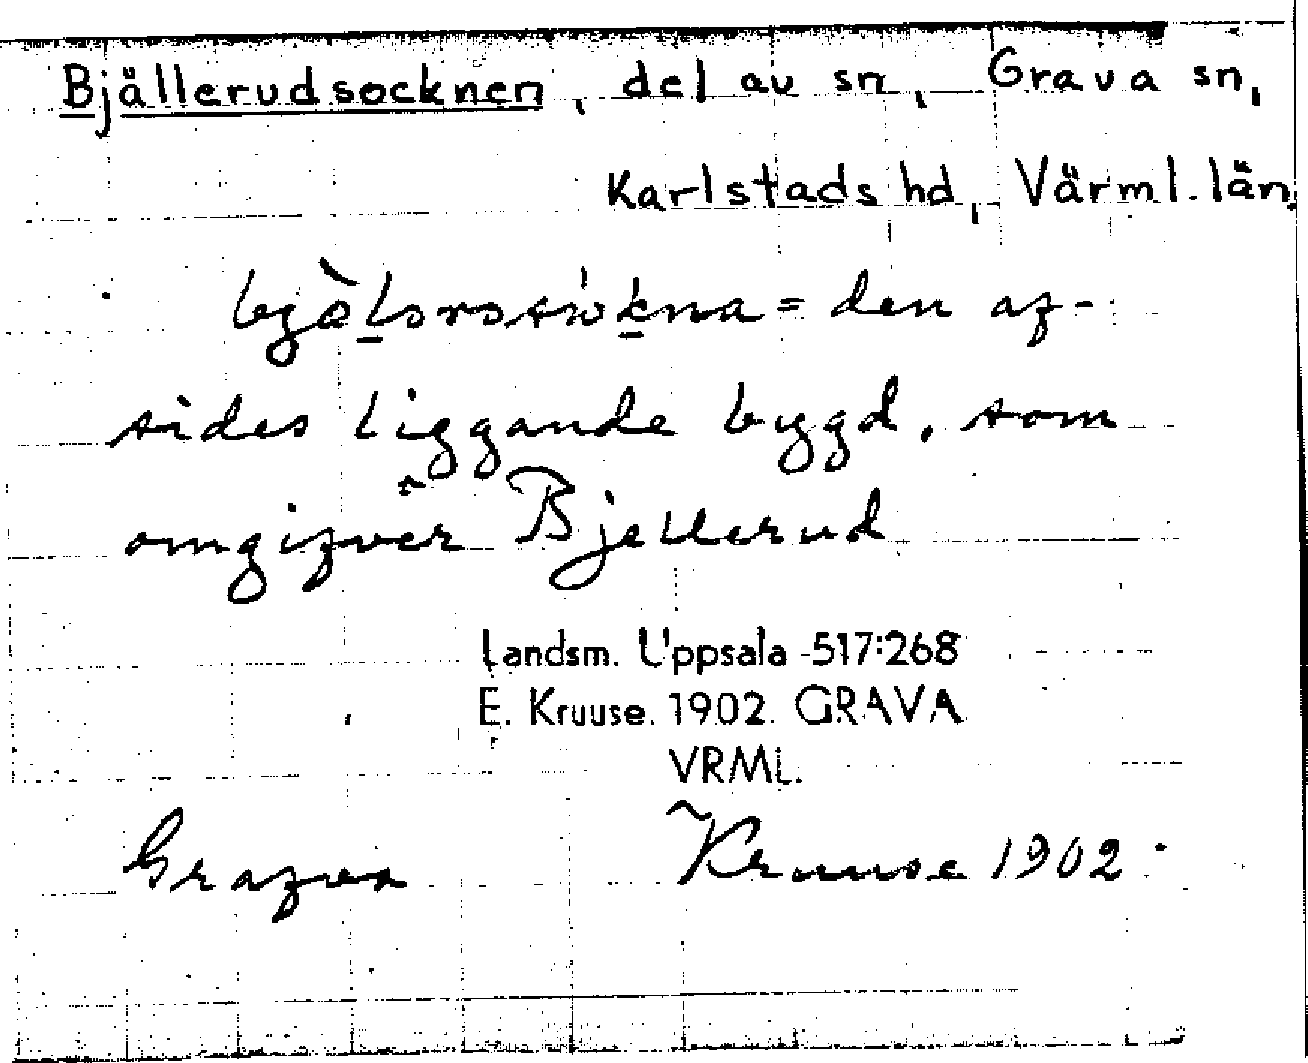 Bjällerudsocknen, del av sn, Grava sn,
Karlstads hd, Värml. län.
den af-
sides liggande bygd, som
omgifver Bjellerud
Landsm. Uppsala 517:268
E. Kruuse. 1902. GRAVA
VRML.
Grafva Kruuse 1902.